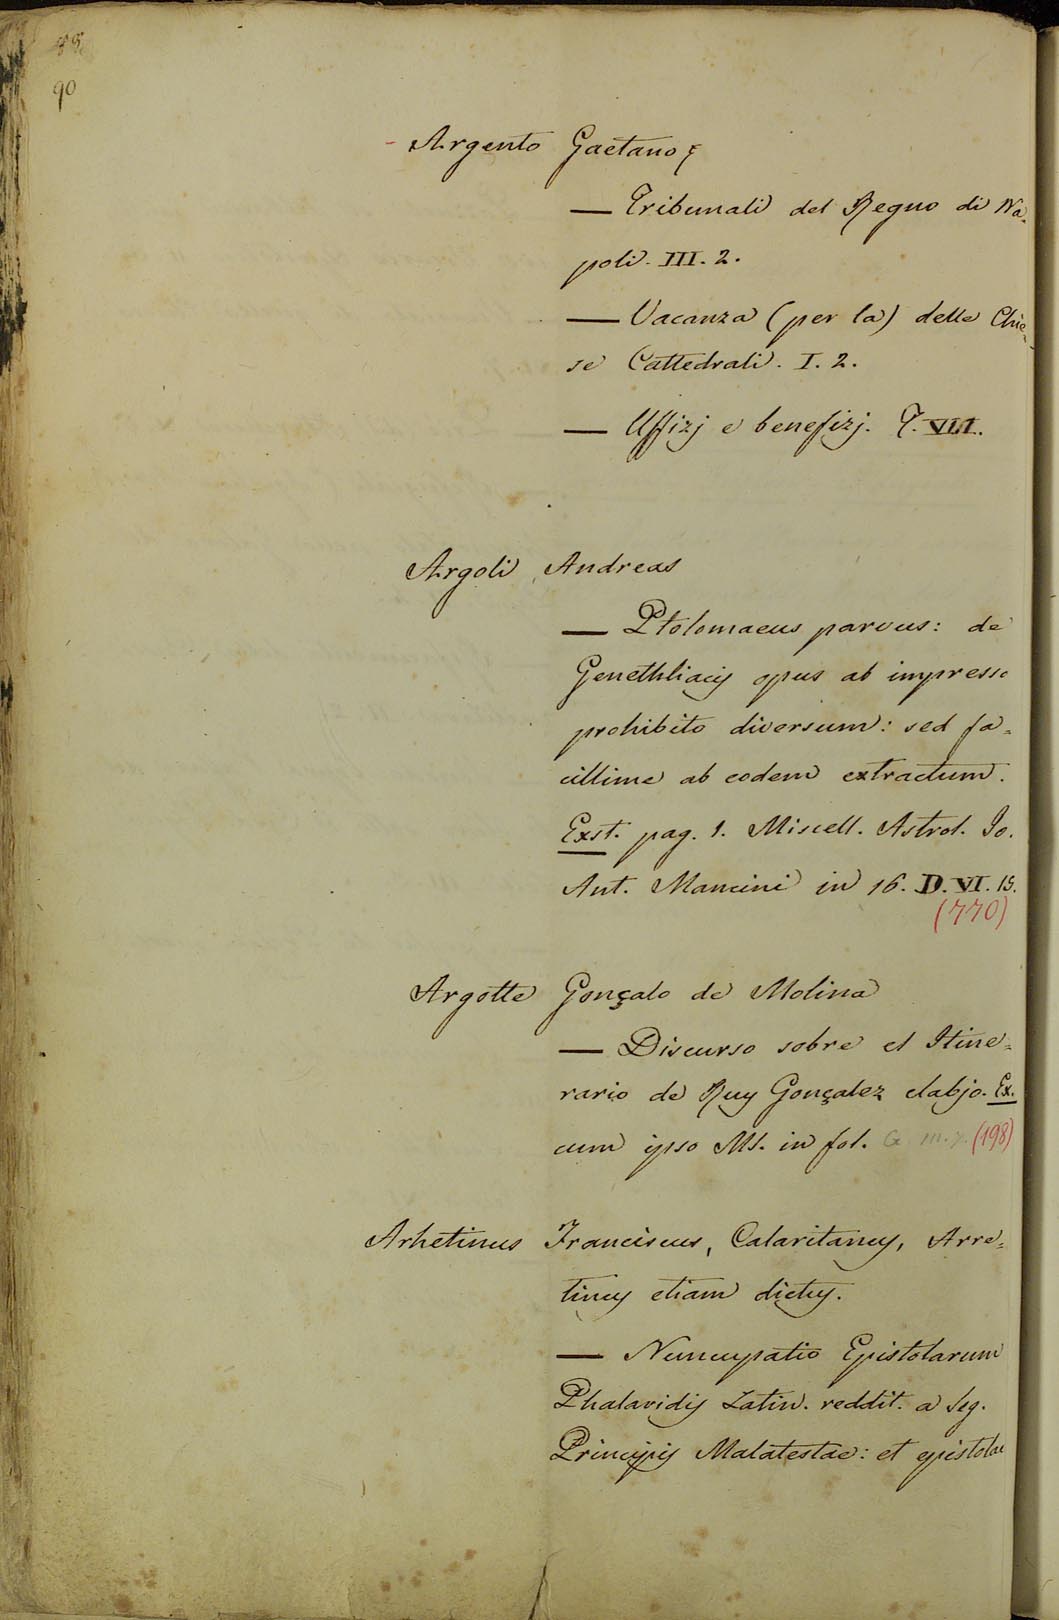 88.
90
- Argento Gaetano
— Tribunali del Regno di Na-
poli. III. 2.
— Vacanza (per la) delle Chie-
se Cattedrali. I. 2.
— Uffizj e benefizj. T. VII.
Argoli Andreas
— Ptolomaeus parvus: de
Genethliacis opus ab impresso
prohibito diversum: sed fa-
cillime ab eodem extractum.
Exst. pag. 1. Miscell. Astrol. Io.
Ant. Mancini in 16. D. VI. 15.
(770)
Argotte Gonçalo de Molina
— Discurso sobre el Itine-
rario de Ruy Gonçalez clabjo. Ex.
cum ipso Ms. in fol. G. m. 7. (198)
Arhetinus Franciscus, Calaritanus, Arre-
tinus etiam dictus.
— Nuncupatio Epistolarum
Phalaridis Latin. reddit. a seg.
Principis Malatestae: et epistolae